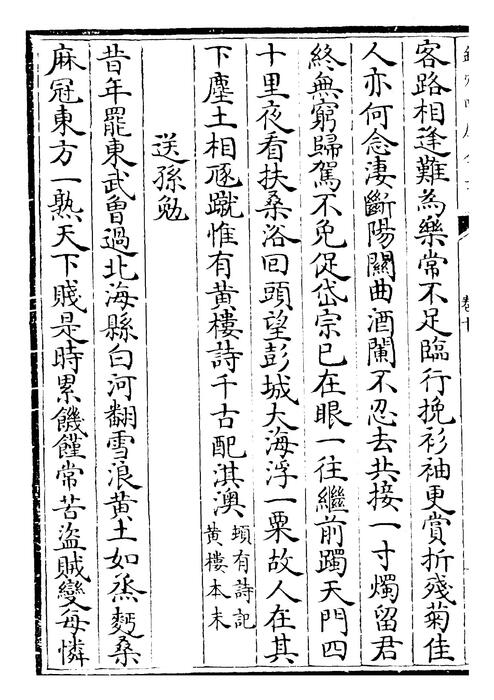 客路相逢難為樂常不足臨行挽衫袖更賞折殘菊佳
人亦何念淒斷陽關曲酒闌不忍去共接一寸燭留君
終無窮歸駕不免促岱宗已在眼一往繼前躅天門四
十里夜看扶桑浴回頭望彭城大海浮一粟故人在其
下塵土相豗蹴惟有黃樓詩千古配淇澳
頃有詩記
黃樓本末
送孫勉
昔年罷東武曾過北海縣白河翻雪浪黃土如蒸麪桑
麻冠東方一熟天下賤是時累饑饉常苦盜賊變每憐
卷十